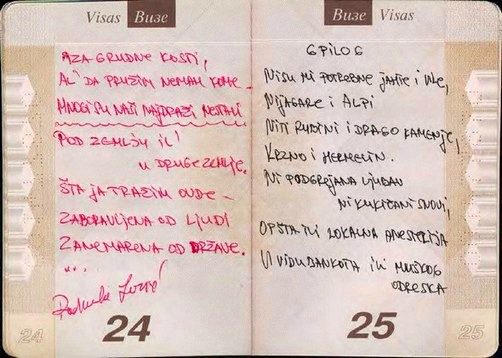 Visas Визе
AZA GRUDNE KOSTI,
AL' DA PRUŽIM NEMAM KOME -
MNOGI SU NAŠI NAJDRAŽI NESTALI
POD ZEMLJU IL'
U DRUGE ZEMLJE.
ŠTA JA TRAŽIM OVDE -
ZABORAVLJENA OD LJUDI
ZANEMARENA OD DRŽAVE.
...
24
24
Визе Visas
EPILOG
NISU MI POTREBNE JAHTE I VILE,
NIJAGARE I ALPI
NITI RUBINI I DRAGO KAMENJE,
KRZNO I HERMELIN.
NI PODGREJANA LJUBAV
NI KUKIČANI SNOVI,
OPŠTA ILI LOKALNA ANESTEZIJA
U VIDU BANKOTA ILI MUŠKOG
ODRESKA
25
25